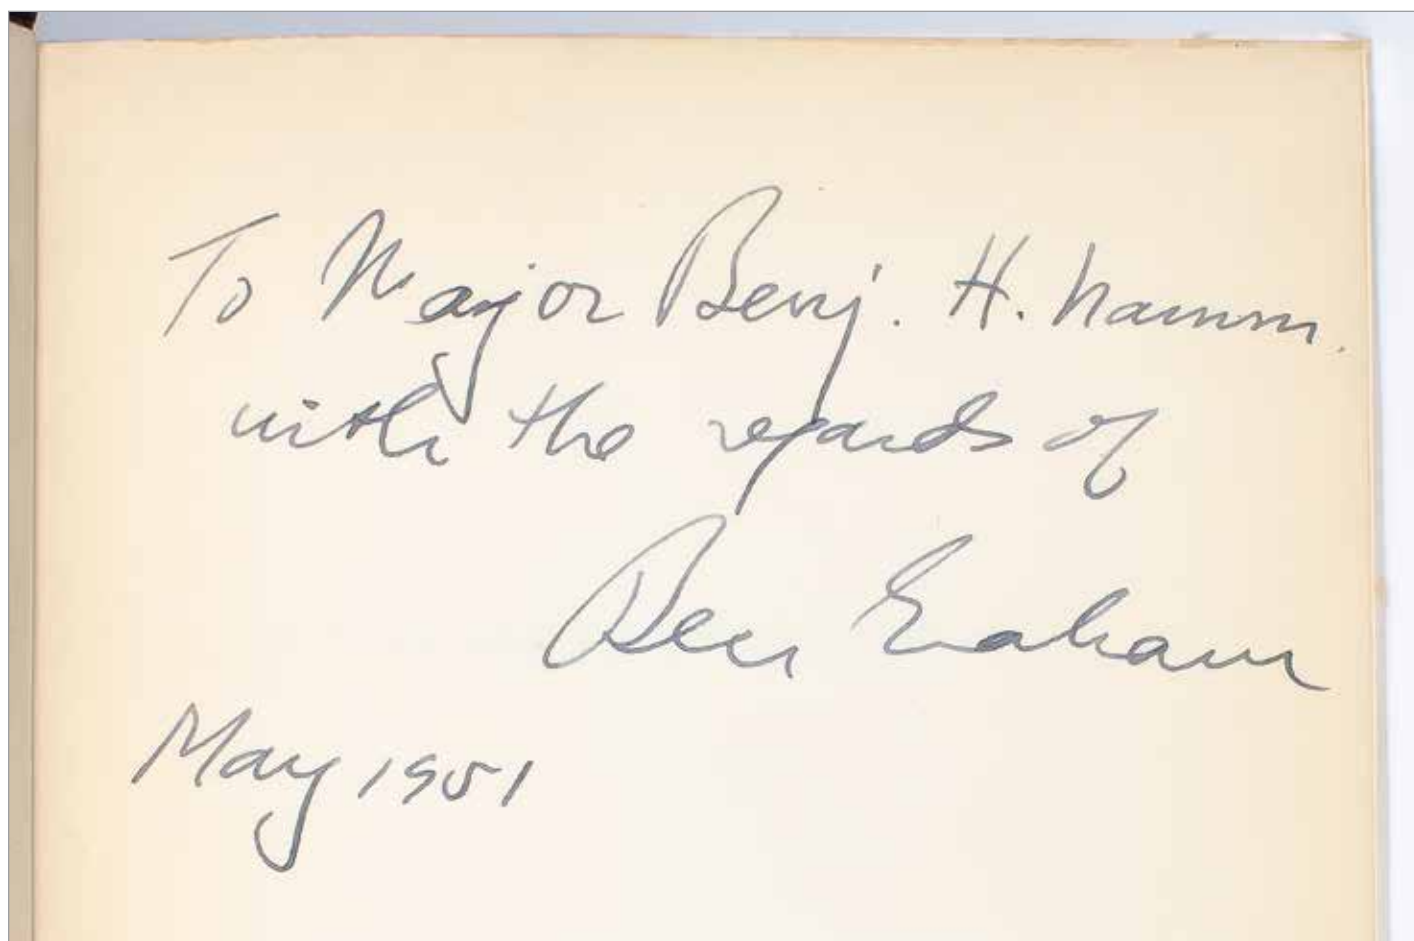 To Major Benj. H. Namm.
with the regards of
Ben Graham
May 1951